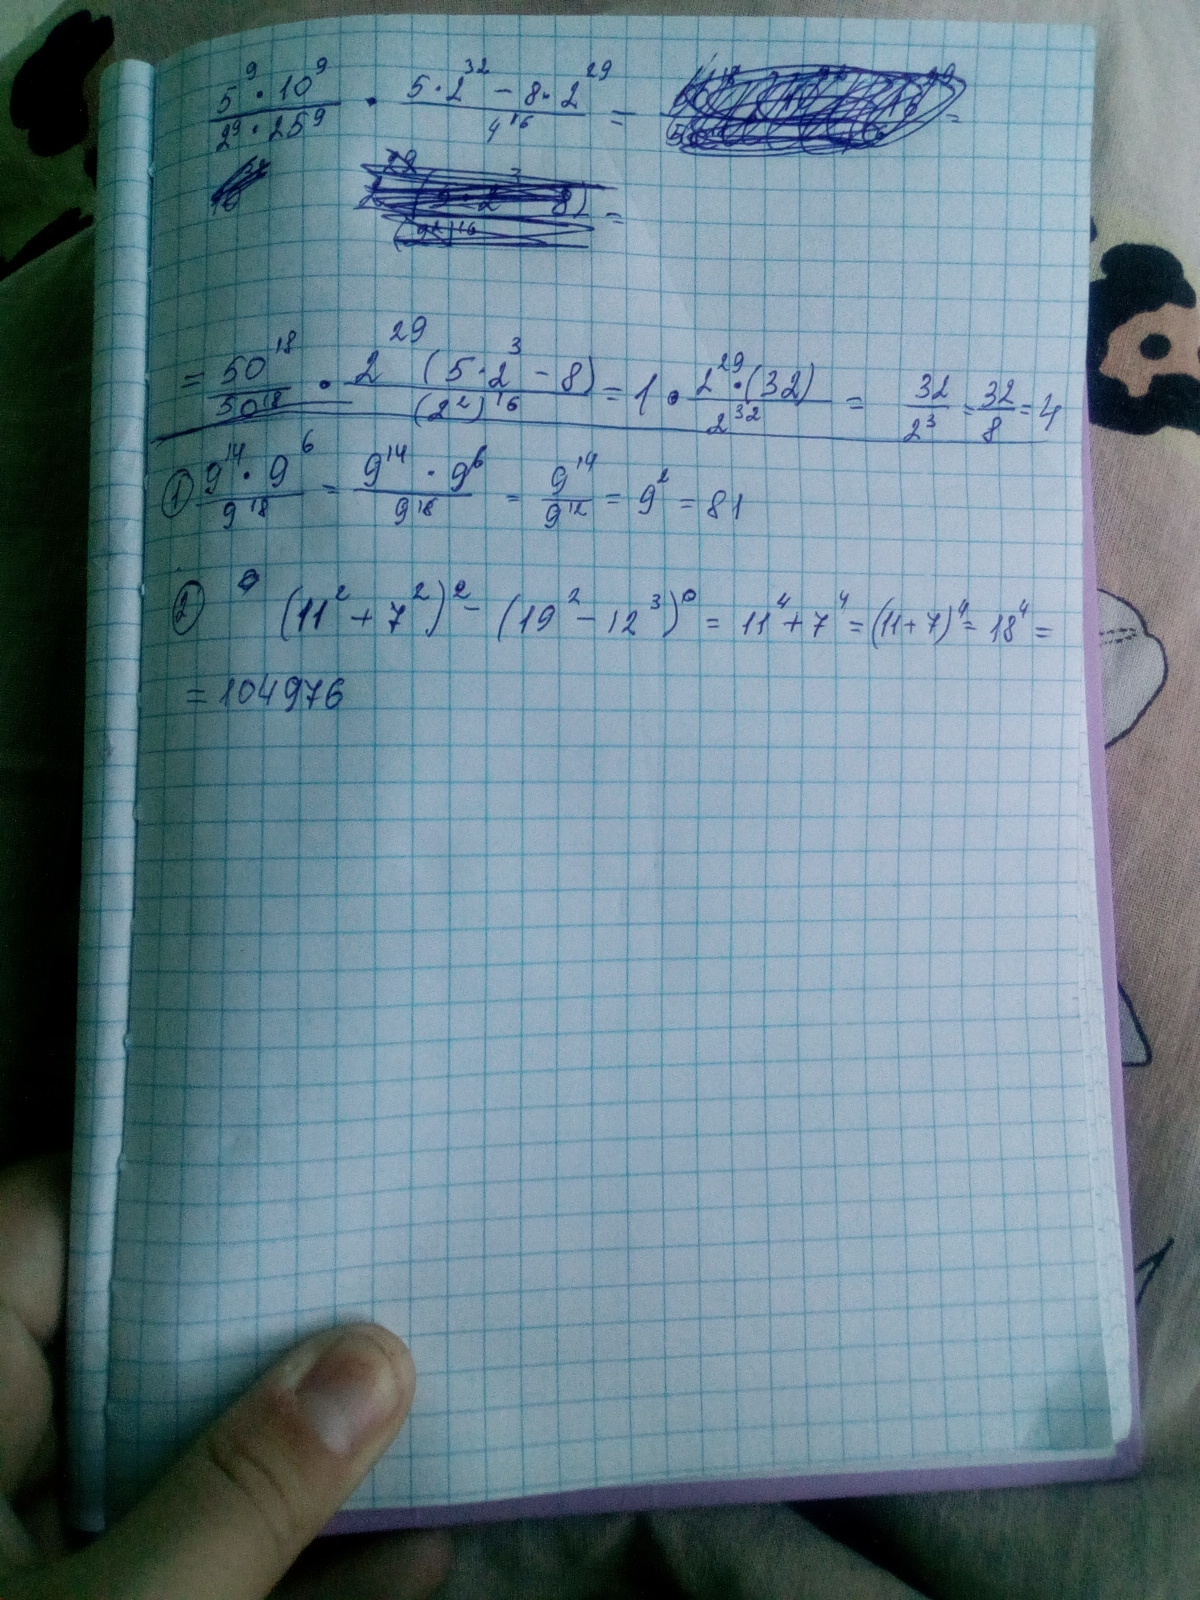 5⁹ · 10⁹ / 2⁹ · 25⁹ · 5 · 2³² − 8 · 2²⁹ / 4¹⁶ =
= 50¹⁸ / 50¹⁸ · 2²⁹ (5 · 2³ − 8) / (2²)¹⁶ = 1 · 2²⁹ · (32) / 2³² = 32 / 2³ = 32 / 8 = 4
① 9¹⁴ · 9⁶ / 9¹⁸ = 9¹⁴ · 9⁶ / 9¹⁸ = 9¹⁴ / 9¹² = 9² = 81
② (11² + 7²)² − (19² − 12³)⁰ = 11⁴ + 7⁴ = (11 + 7)⁴ = 18⁴ =
= 104976